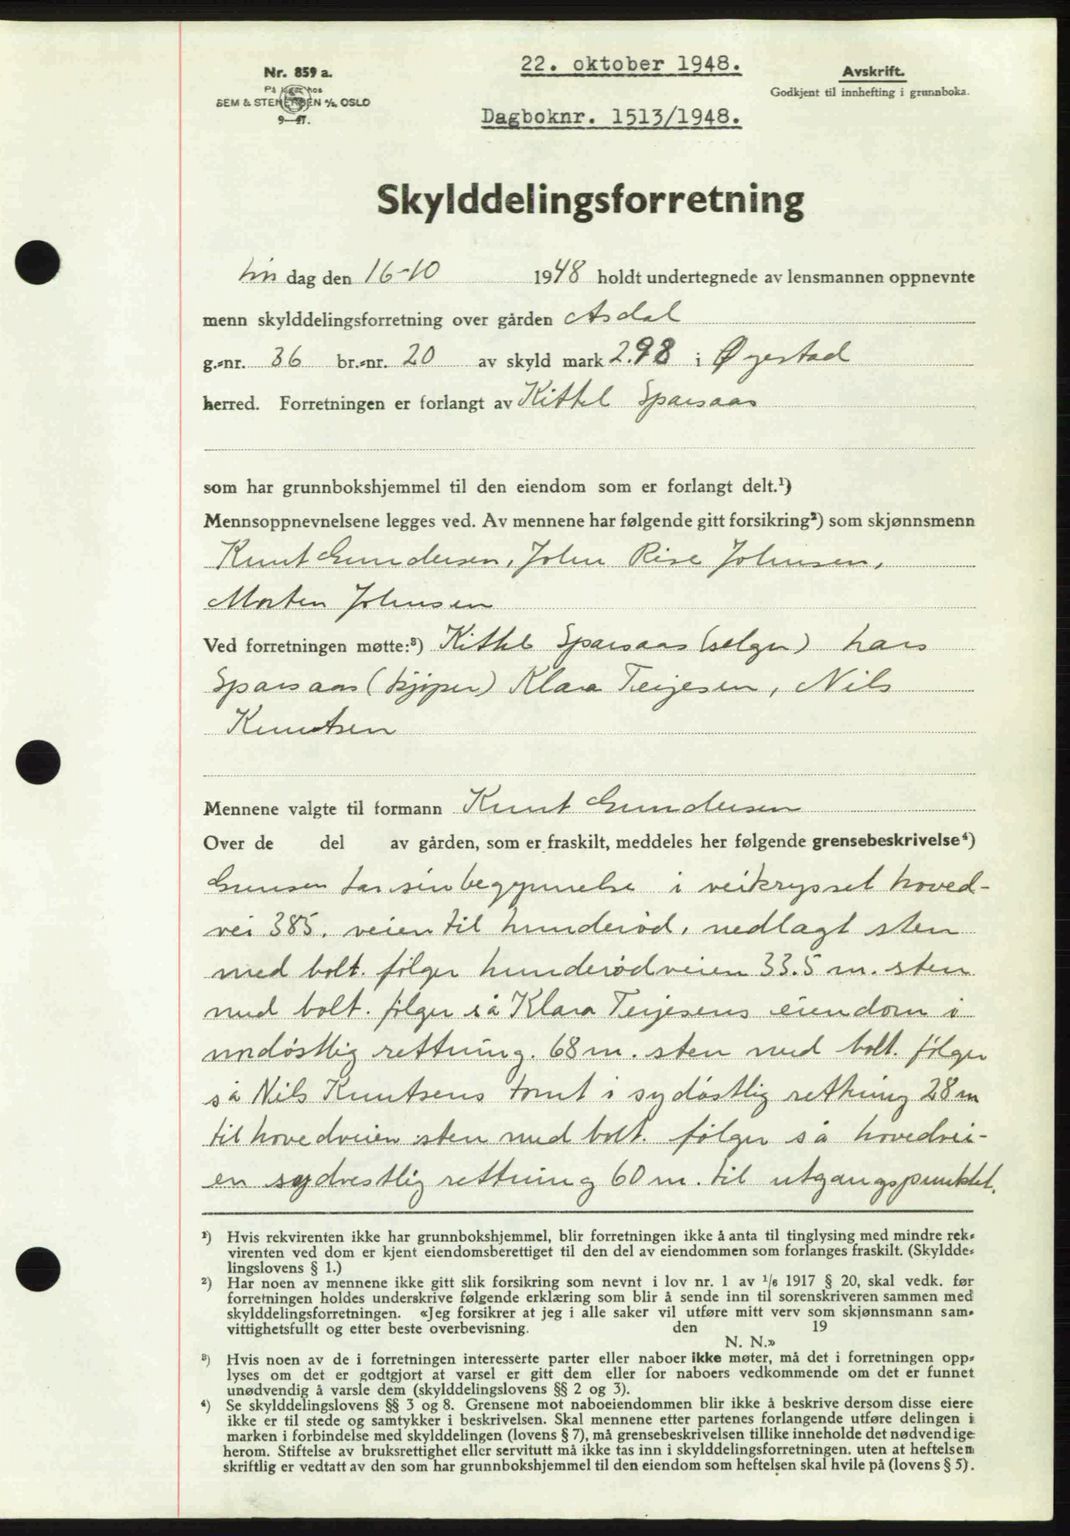 22. oktober 1948.
Nr. 859 a.
Avskrift.
SEM & STENERSEN A/S, OSLO
Godkjent til innhefting i grunnboka.
9—47.
Dagboknr. 1513/1948.
Skylddelingsforretning
dag den 16-10 1948 holdt undertegnede av lensmannen oppnevnte
menn skylddelingsforretning over gården Asdal
g.-nr. 36 br.-nr. 20 av skyld mark 2.98 i Øyestad
herred. Forretningen er forlangt av Kittel Sparsaas
som har grunnbokshjemmel til den eiendom som er forlangt delt.¹)
Mennsoppnevnelsene legges ved. Av mennene har følgende gitt forsikring²) som skjønnsmenn
Knut Gundersen, John Rise Johnsen,
Morten Johnsen
Ved forretningen møtte:³) Kittel Sparsaas (selger) Lars
Sparsaas (kjøper) Klara Terjesen, Nils
Knutsen
Mennene valgte til formann Knut Gundersen
Over de del av gården, som er fraskilt, meddeles her følgende grensebeskrivelse⁴)
Grensen tar sin begynnelse i veikrysset hoved-
vei 385. veien til hunderød, nedlagt sten
med bolt. følger hunderødveien 33.5 m. sten
med bolt. følger så Klara Terjesens eiendom i
nordøstlig rettning. 68 m. sten med bolt. følger
så Nils Knutsens tomt i sydøstlig rettning 28 m
til hovedveien sten med bolt. følger så hovedvei-
en sydvestlig rettning 60 m. til utgangspunktet.
¹) Hvis rekvirenten ikke har grunnbokshjemmel, blir forretningen ikke å anta til tinglysing med mindre rek-
virenten ved dom er kjent eiendomsberettiget til den del av eiendommen som forlanges fraskilt. (Skyldde-
lingslovens § 1.)
²) Har noen av mennene ikke gitt slik forsikring som nevnt i lov nr. 1 av 1/6 1917 § 20, skal vedk. før
forretningen holdes underskrive følgende erklæring som blir å sende inn til sorenskriveren sammen med
skylddelingsforretningen. «Jeg forsikrer at jeg i alle saker vil utføre mitt verv som skjønnsmann sam-
vittighetsfullt og etter beste overbevisning. den 19
N. N.»
³) Hvis noen av de i forretningen interesserte parter eller naboer ikke møter, må det i forretningen opp-
lyses om det er godtgjort at varsel er gitt dem eller for naboers vedkommende om det er funnet
unødvendig å varsle dem (skylddelingslovens §§ 2 og 3).
⁴) Se skylddelingslovens §§ 3 og 8. Grensene mot naboeiendommen blir ikke å beskrive dersom disse eiere
ikke er til stede og samtykker i beskrivelsen. Skal mennene etter partenes forlangende utføre delingen i
marken i forbindelse med skylddelingen (lovens § 7), må grensebeskrivelsen tillike inneholde det nødvendige
herom. Stiftelse av bruksrettighet eller servitutt må ikke tas inn i skylddelingsforretningen, uten at heftelsen
skriftlig er vedtatt av den som har grunnbokshjemmel til den eiendom som heftelsen skal hvile på (lovens § 5).